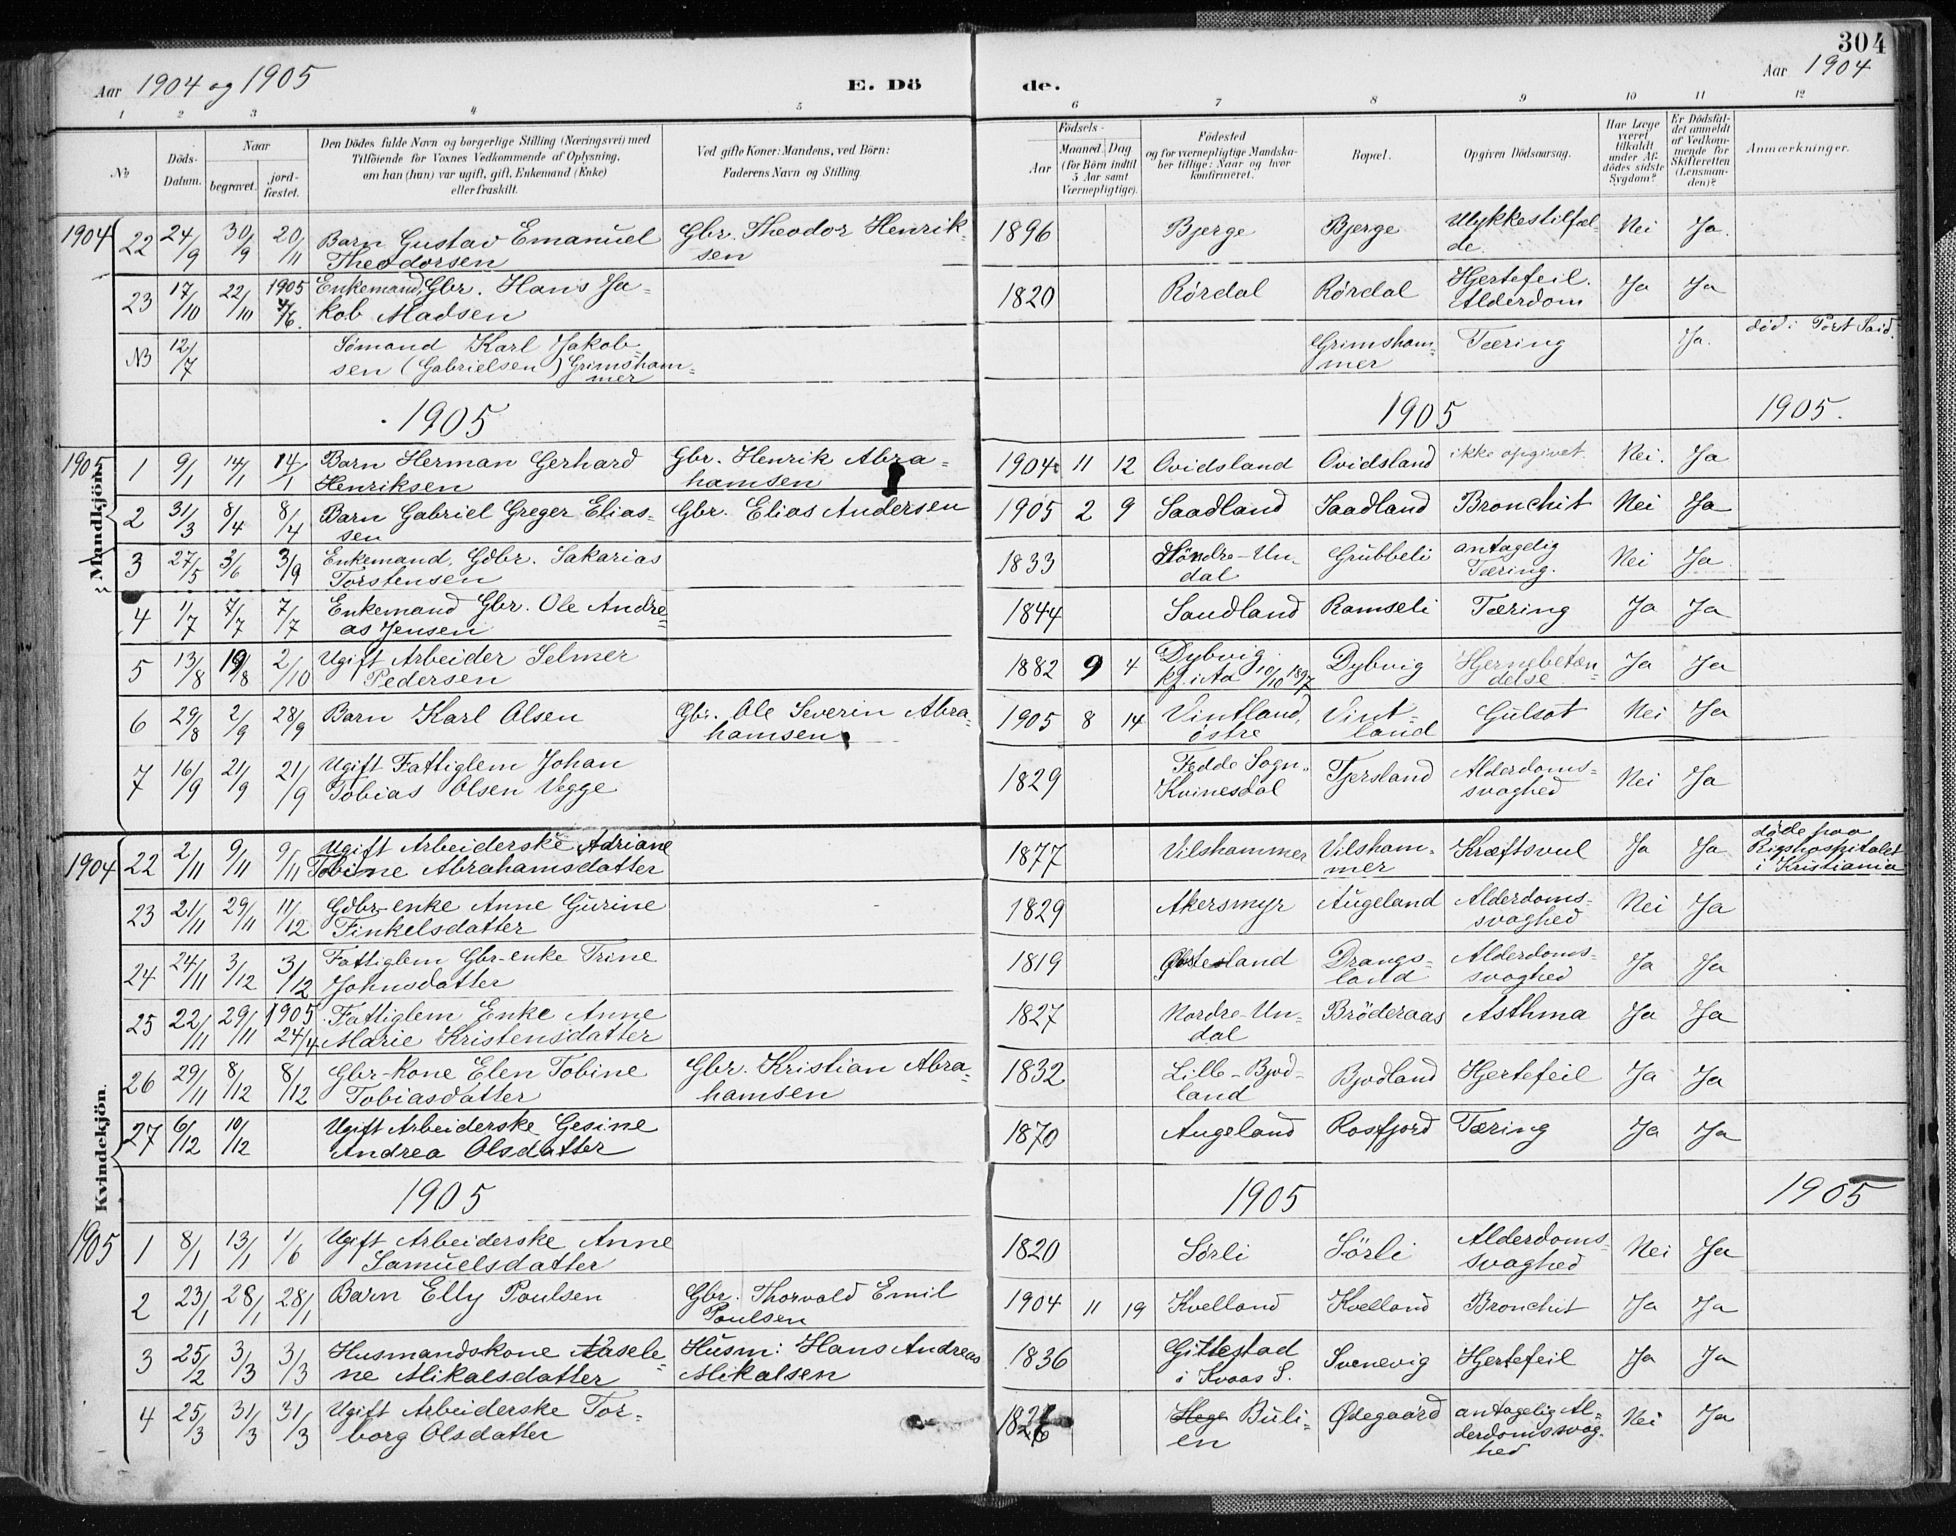 304
Aar 1904 og 1905
E. Dö de.
Aar 1904
1 2 3 4 5 6 7 8 9 10 11 12
No
Döds-Datum.
Naar
begravet.
jord-fæstet.
Den Dödes fulde Navn og borgerlige Stilling (Næringsvei) med
Tilföiende for Voxnes Vedkommende af Oplysning,
om han (hun) var ugift, gift, Enkemand (Enke)
eller fraskilt.
Ved gifte Koner: Mandens, ved Börn:
Faderens Navn og Stilling.
Födsels-
Aar
Maaned. Dag
(for Börn indtil
5 Aar samt
Værnepligtige).
Födested
og for værnepligtige Mandska-
ber tillige: Naar og hvor
konfirmeret.
Bopæl.
Opgiven Dödsaarsag.
Har Læge
været
tilkaldt
under Af-
dödes sidste
Sygdom?
Er Dödsfal-
det anmeldt
af Vedkom-
mende for
Skifteretten
(Lensman-
den)?
Anmærkninger.
1904 22 24/9 30/9 20/11 Barn Gustav Emanuel Gbr. Theodor Henrik- 1896 Bjerge Bjerge Ulykkestilfæl- Nei Ja
Theodorsen sen de.
23 17/10 22/10 1905 4/6. Enkemand, Gbr. Hans Ja- 1820 Rørdal Rørdal Hjertefeil. Ja Ja
kob Madsen Alderdom
NB 12/7 Sømand Karl Jakob- Grimsham- Tæring Ja. død i Port Said.
sen (Gabrielsen) Grimsham- mer
mer
1905 1905 1905.
1905
Mandkjön
1 9/1 14/1 14/1 Barn Herman Gerhard Gbr. Henrik Abra- 1904 11 12 Ovidsland Ovidsland ikke opgivet. Nei. Ja
Henriksen hamsen
2 31/3 8/4 8/4 Barn Gabriel Greger Elias- Gbr. Elias Andersen 1905 2 9 Saadland Saadland Bronchit Nei Ja
sen
3 27/5 3/6 3/9 Enkemand, Gdbr. Sakarias 1833 Søndre-Un- Grubbeli antagelig Nei Ja
Torstensen dal Tæring.
4 1/7 7/7 7/7 Enkemand Gbr. Ole Andre- 1844 Sandland Ramseli Tæring Ja Ja
as Jensen
5 13/8 19/8 2/10 Ugift Arbeider Selmer 1882 9 4 Dybvig. Dybvig Hjernebeten- Ja Ja
Pedersen kf. i Aa 10/10 1897 delse
6 29/8 2/9 28/9 Barn Karl Olsen Gbr. Ole Severin Abra- 1905 8 14 Vintland, Vint- Gulsot Nei Ja
hamsen østre land
7 16/9 21/9 21/9 Ugift Fattiglem Johan 1829 Fedde Sogn, Tjersland Alderdoms- Nei Ja
Tobias Olsen Vegge Kvinesdal svaghed
1904 22 2/11 9/11 9/11 Ugift Arbeiderske Adriane 1877 Vilshammer Vilsham- Kræftsvul Ja Ja døde paa
Tobine Abrahamsdatter mer Rigshospitalet
i Kristiania
23 21/11 29/11 11/12 Gdbr-enke Anne Gurine 1829 Akersmyr Augeland Alderdoms- Nei Ja
Finkelsdatter svaghed
24 24/11 3/12 3/12 Fattiglem Gbr-enke Trine 1819 Drangs- Alderdoms- Ja Ja
Johnsdatter land svaghed
25 22/11 29/11 1905 24/4 Fattiglem Enke Anne 1827 Nordre-Un- Bröderaas Asthma Ja Ja
Marie Kristensdatter dal
26 29/11 8/12 8/12 Gbr-kone Elen Tobine Gbr. Kristian Abra- 1832 Lille-Bjod- Bjodland Hjertefeil Ja Ja
Tobiasdatter hamsen land
27 6/12 10/12 Ugift Arbeiderske Gesine 1870 Augeland Rosfjord Tæring Ja Ja
Andrea Olsdatter
Kvindekjön.
1905 1905 1905
1905 1 8/1 13/1 1/6 Ugift Arbeiderske Anne 1820 Sørli Sørli Alderdoms- Nei Ja
Samuelsdatter svaghed
2 23/1 28/1 28/1 Barn Elly Poulsen Gbr. Thorvald Emil 1904 11 19 Kvelland Kvelland Bronchit Ja Ja
Poulsen
3 25/2 3/3 3/3 Husmandskone Aasele- Husm: Hans Andreas 1836 Gittestad Svenevig Hjertefeil Ja Ja
ne Mikalsdatter Mikalsen i Kvaas S.
4 25/3 31/3 31/3 Ugift Arbeiderske Tor- 1826 Hege Buli- Ødegaard antagelig Al- Nei Ja
borg Olsdatter en derdomssvag-
hed